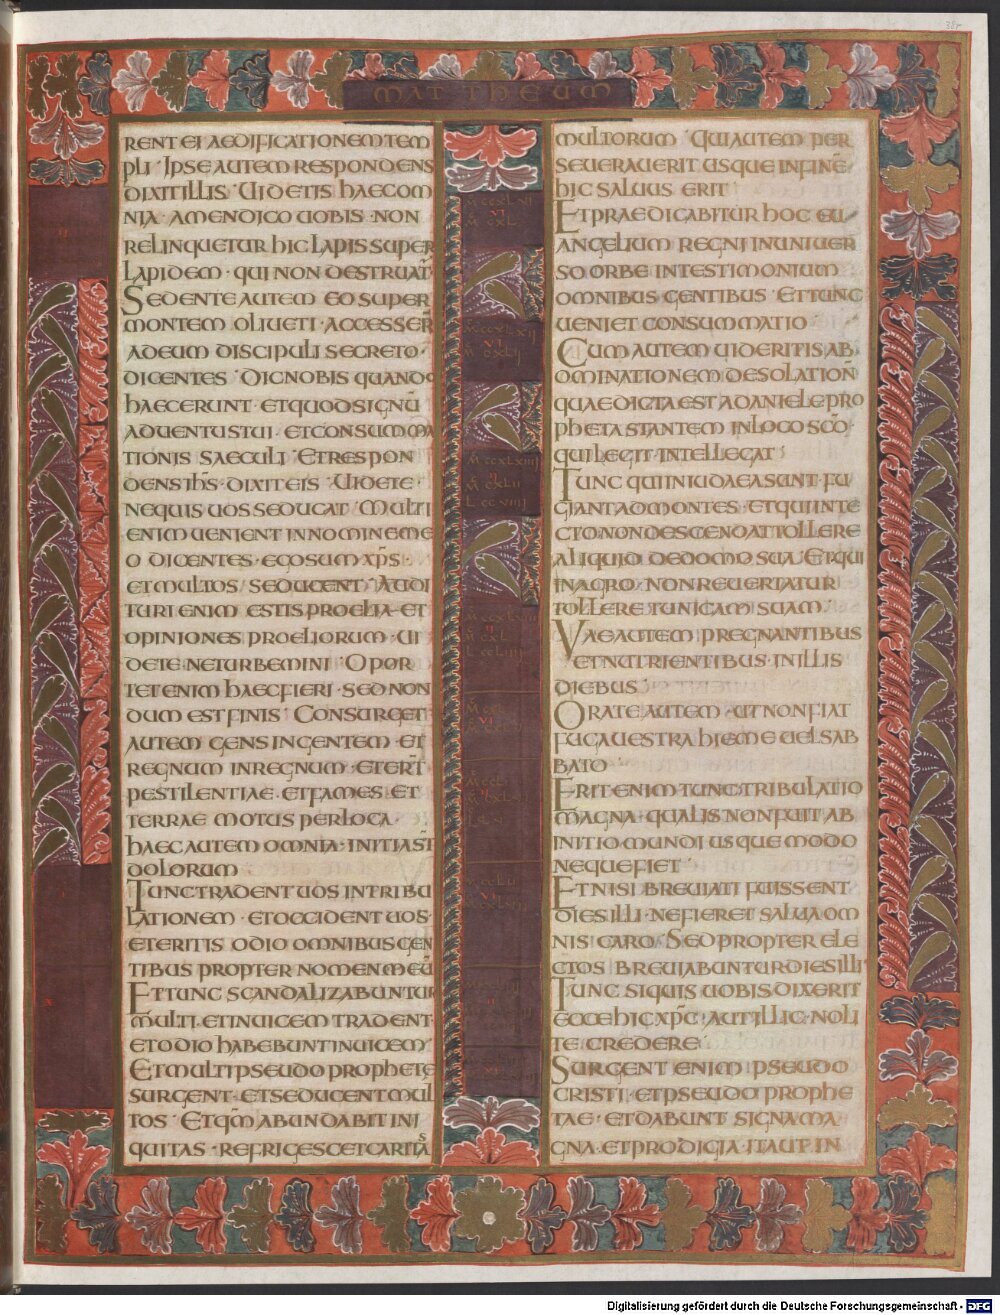 38r
MATTHEUM
RENT EI AEDIFICATIONEM TEM
PLI · IPSE AUTEM RESPONDENS
DIXIT ILLIS · UIDETIS HAEC OM
NIA · AMEN DICO UOBIS · NON
RELINQUETUR HIC LAPIS SUPER
LAPIDEM · QUI NON DESTRUAT̄
SEDENTE AUTEM EO SUPER
MONTEM OLIUETI · ACCESSER̄
AD EUM DISCIPULI SECRETO ·
DICENTES · DIC NOBIS QUANDO
HAEC ERUNT · ET QUOD SIGNŪ
ADUENTUS TUI · ET CONSUMMA
TIONIS SAECULI · ET RESPON
DENS IH̄S · DIXIT EIS · UIDETE ·
NE QUIS UOS SEDUCAT · MULTI
ENIM UENIENT IN NOMINE ME
O DICENTES · EGO SUM XP̄S ·
ET MULTOS SEDUCENT · AUDI
TURI ENIM ESTIS PROELIA · ET
OPINIONES PROELIORUM · UI
DETE NE TURBEMINI · OPOR
TET ENIM HAEC FIERI · SED NON
DUM EST FINIS · CONSURGET
AUTEM GENS IN GENTEM · ET
REGNUM IN REGNUM · ET ER̄T
PESTILENTIAE · ET FAMES · ET
TERRAE MOTUS PER LOCA ·
HAEC AUTEM OMNIA · INITIA S̄T
DOLORUM
TUNC TRADENT UOS IN TRIBU
LATIONEM · ET OCCIDENT UOS ·
ET ERITIS ODIO OMNIBUS GEN
TIBUS PROPTER NOMEN MEŪ
ET TUNC SCANDALIZABUNTUR
MULTI · ET INUICEM TRADENT ·
ET ODIO HABEBUNT INUICEM
ET MULTI PSEUDO PROPHETE
SURGENT · ET SEDUCENT MUL
TOS · ET QM̄ ABUNDABIT INI
QUITAS · REFRIGESCET CARITAS
MULTORUM · QUI AUTEM PER
SEUERAUERIT USQUE IN FINĒ
HIC SALUUS ERIT
ET PRAEDICABITUR HOC EU
ANGELIUM REGNI IN UNIUER
SO ORBE IN TESTIMONIUM
OMNIBUS GENTIBUS · ET TUNC
UENIET CONSUMMATIO
CUM AUTEM UIDERITIS AB
OMINATIONEM DESOLATION̄
QUAE DICTA EST A DANIELE PRO
PHETA STANTEM IN LOCO SC̄O ·
QUI LEGIT · INTELLEGAT ·
TUNC QUI IN IUDAEA SUNT · FU
GIANT AD MONTES · ET QUI IN TE
CTO NON DESCENDAT TOLLERE
ALIQUID DE DOMO SUA · ET QUI
IN AGRO · NON REUERTATUR
TOLLERE TUNICAM SUAM ·
VAE AUTEM PREGNANTIBUS
ET NUTRIENTIBUS · IN ILLIS
DIEBUS ·
ORATE AUTEM · UT NON FIAT
FUGA UESTRA HIEME UEL SAB
BATO
ERIT ENIM TUNC TRIBULATIO
MAGNA · QUALIS NON FUIT AB
INITIO MUNDI USQUE MODO
NEQUE FIET
ET NISI BREUIATI FUISSENT
DIES ILLI · NE FIERET SALUA OM
NIS CARO · SED PROPTER ELE
CTOS BREUIABUNTUR DIES ILLI
TUNC SI QUIS UOBIS DIXERIT
ECCE HIC XP̄C · AUT ILLIC · NOLI
TE CREDERE
SURGENT ENIM PSEUDO
CRISTI · ET PSEUDO PROPHE
TAE · ET DABUNT SIGNA MA
GNA · ET PRODIGIA · ITA UT IN
Digitalisierung gefördert durch die Deutsche Forschungsgemeinschaft - DFG